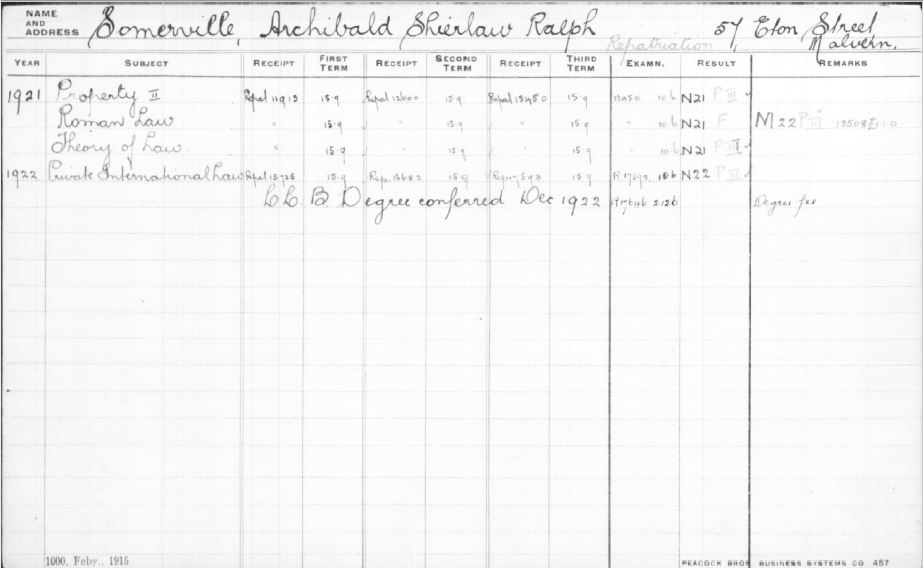 NAME AND ADDRESS Somerville, Archibald Shierlaw Ralph 57, Eton Street
Repatriation Malvern.
YEAR SUBJECT RECEIPT FIRST TERM RECEIPT SECOND TERM RECEIPT THIRD TERM EXAMN. RESULT REMARKS
1921 Property II Repat 11913 15·9 Repat 12600 15·9 Repat 13450 15·9 13450 10.6 N21 P III ✓
Roman Law " 15·9 " 15·9 " 15·9 " 10.6 N21 F M22 P III 13508 £1.1.0
Theory of Law. " 15·9 " 15·9 " 15·9 " 10.6 N21 P III ✓
1922 Private International Law Repat 15725 15·9 Rep. 16682 15·9 Rep. 17593 15·9 R 17593 10.6 N22 P II ✓
LL. B. Degree conferred Dec 1922 R17646 2.12.6 Degree fee
1000, Feby., 1915 PEACOCK BROS BUSINESS SYSTEMS CO. 457